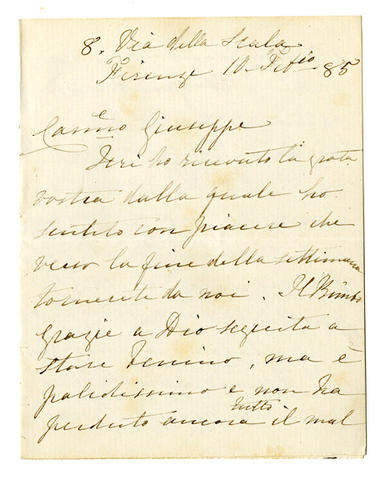 8. Via della Scala
Firenze 10. Febio. 85
Carmo Giuseppe
Jeri ho ricevuto la grata
vostra dalla quale ho
sentito con piacere che
verso la fine della settimana
tornerete da noi. Il Bimbo
grazie a Dio seguita a
stare benino, ma è
palidissimo e non ha
perduto ancora tutto il mal